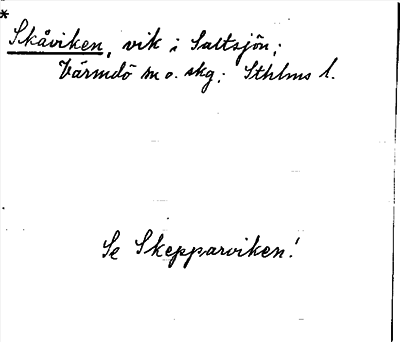 *
Skåviken, vik i Saltsjön;
Värmdö m o. skg; Sthlms l.
Se Skepparviken!